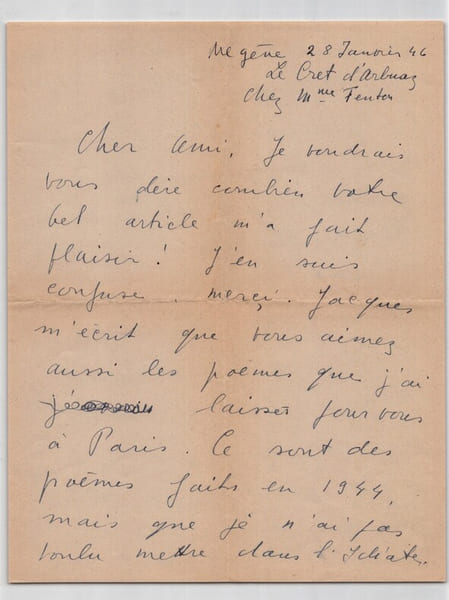 Megève 28 Janvier 46
Le Cret d'Arbuaz
Chez Mme Fenton
Cher Ami, Je voudrais
vous dire combien votre
bel article m'a fait
plaisir! J'en suis
confuse. merçi. Jacques
m'écrit que vous aimez
aussi les poèmes que j'ai
laissés pour vous
à Paris. Ce sont des
poèmes faits en 1944,
mais que je n'ai pas
voulu mettre dans l'